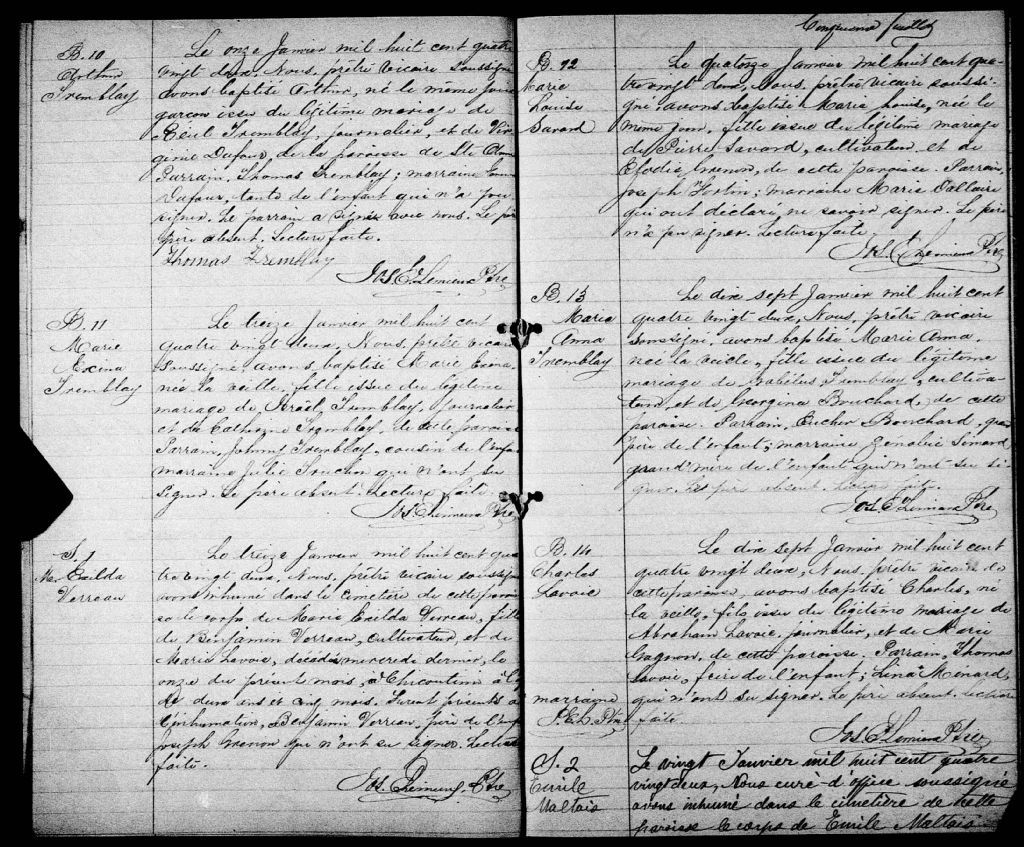 B. 10
Arthur
Tremblay
Le onze Janvier mil huit cent quatre
vingt deux, Nous, prêtre vicaire soussigné
avons baptisé Arthur, né le même jour
garçon issu du légitime mariage de
Tremblay, journalier, et de Vir
ginie Dufour, de la paroisse de Ste Anne
Parrain, Thomas Tremblay; marraine
Dufour, tante de l'enfant qui n'a pu
signer. Le parrain a signé avec nous. Le
père absent. Lecture faite.
Thomas Tremblay
Jos. E. Lemieux Ptre
B. 11
Marie
Exina
Tremblay
Le treize Janvier mil huit cent
quatre vingt deux, Nous, prêtre vicaire
soussigné avons baptisé Marie Exina
née la veille, fille issue du légitime
mariage de Israël Tremblay, journalier
et de Catherine Tremblay, de cette paroisse
Parrain, Johnny Tremblay, cousin de l'enfant
marraine Julie Truchon qui n'ont su
signer. Le père absent. Lecture faite.
Jos. E. Lemieux Ptre
S. 1
Mie Exilda
Verreau
Le treize Janvier mil huit cent qua
tre vingt deux, Nous, prêtre vicaire soussigné
avons inhumé dans le cimetière de cette parois
se le corps de Marie Exilda Verreau, fille
de Benjamin Verreau, cultivateur, et de
Marie Lavoie, décédée mercredi dernier, le
onze du présent mois, à Chicoutimi à l'âge
de deux ans et cinq mois. Furent présents à
l'inhumation, Benjamin Verreau, père de l'enfant
Joseph Grenon qui n'ont su signer. Lecture
faite.
Jos. E. Lemieux Ptre
Cinquième feuillet
B. 12
Marie
Louise
Savard
Le quatorze Janvier mil huit cent qua
tre vingt deux, Nous, prêtre vicaire soussi
gné avons baptisé Marie Louise, née le
même jour, fille issue du légitime mariage
de Pierre Savard, cultivateur, et de
Elodie Grenon, de cette paroisse. Parrain,
Joseph Fortin; marraine Marie Dallaire
qui ont déclaré ne savoir signer. Le père
n'a pu signer. Lecture faite.
Jos. E. Lemieux Ptre
B. 13
Marie
Anna
Tremblay
Le dix sept Janvier mil huit cent
quatre vingt deux, Nous, prêtre vicaire
soussigné, avons baptisé Marie Anna,
née la veille, fille issue du légitime
mariage de Gabélus Tremblay, cultiva
teur, et de Georgina Bouchard, de cette
paroisse. Parrain, Eucher Bouchard, grand
père de l'enfant; marraine Zénaïde Simard
grand'mère de l'enfant qui n'ont su si
gner. Le père absent. Lecture faite.
Jos. E. Lemieux Ptre
B. 14
Charles
Lavoie
Le dix sept Janvier mil huit cent
quatre vingt deux, Nous, prêtre vicaire de
cette paroisse, avons baptisé Charles, né
la veille, fils issu du légitime mariage de
Abraham Lavoie, journalier, et de Marie
Gagnon, de cette paroisse. Parrain, Thomas
Lavoie, frère de l'enfant; Lina Menard,
marraine
qui n'ont su signer. Le père absent. Lecture
faite.
Jos. E. Lemieux Ptre
S. 2
Emile
Maltais
Le vingt Janvier mil huit cent quatre
vingt deux, Nous curé d'office soussigné
avons inhumé dans le cimetière de cette
paroisse le corps de Emile Maltais